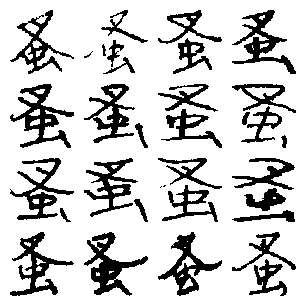 蚤蚤蚤蚤
蚤蚤蚤蚤
蚤蚤蚤蚤
蚤蚤蚤蚤